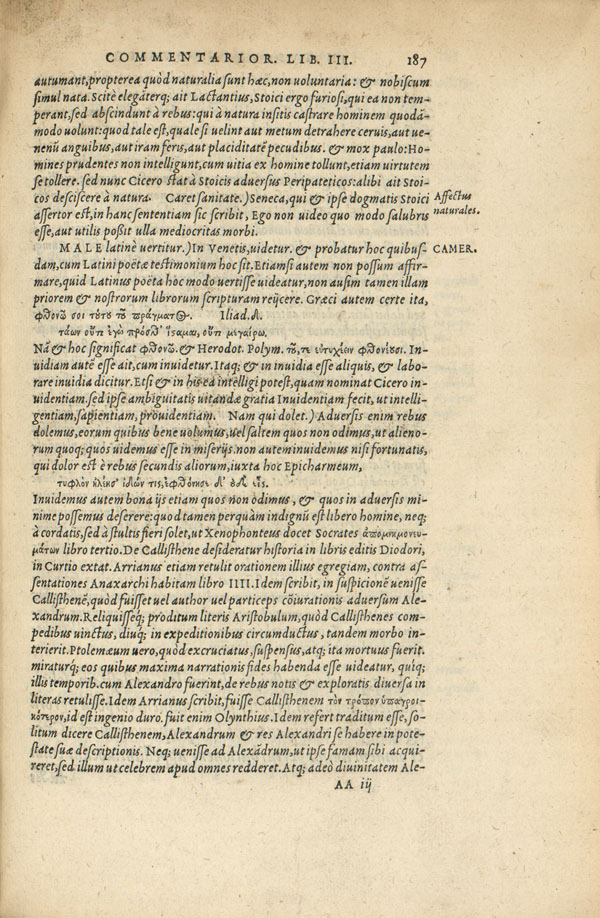 COMMENTARIOR. LIB. III. 187
autumant, propterea quòd naturalia sunt hæc, non voluntaria: & nobiscum
simul nata. Scitè elegãterq; ait Lactantius, Stoici ergo furiosi, qui ea non tem-
perant, sed abscindunt à rebus: qui à natura insitis castrare hominem quodã-
modo uolunt: quod tale est, quale si uelint aut metum detrahere ceruis, aut ue-
nenũ anguibus, aut iram feris, aut placiditatẽ pecudibus. & mox paulo: Ho-
mines prudentes non intelligunt, cum uitia ex homine tollunt, etiam uirtutem
se tollere. sed nunc Cicero stat à Stoicis aduersus Peripateticos: alibi ait Stoi-
cos desciscere à natura. Caret sanitate.) Seneca, qui & ipse dogmatis Stoici
Affectus
naturales.
assertor est, in hanc sententiam sic scribit, Ego non uideo quo modo salubris
esse, aut utilis poßit ulla mediocritas morbi.
MALE latinè uertitur.) In Venetis, uidetur. & probatur hoc quibus-
CAMER.
dam, cum Latini poëtæ testimonium hoc sit. Etiamsi autem non possum affir-
mare, quid Latinus poëta hoc modo uertisse uideatur, non ausim tamen illam
priorem & nostrorum librorum scripturam reijcere. Græci autem certe ita,
φθονῶ σοι τούτου τοῦ πράγματος. Iliad. δ.
τάων οὔτι ἐγὼ πρόσθ' ἵσαμαι, οὔτι μεγαίρω.
Nã & hoc significat φθονῶ. & Herodot. Polym. τοῦ, τε εὐτυχέειν φθονέουσι. In-
uidiam autẽ esse ait, cum inuidetur. Itaq; & in inuidia esse aliquis, & labo-
rare inuidia dicitur. Etsi & in his ea intelligi potest, quam nominat Cicero in-
uidentiam. sed ipse ambiguitatis uitandæ gratia Inuidentiam fecit, ut intelli-
gentiam, sapientiam, prouidentiam. Nam qui dolet.) Aduersis enim rebus
dolemus, eorum quibus bene uolumus, uel saltem quos non odimus, ut alieno-
rum quoq; quos uidemus esse in miserijs. non autem inuidemus nisi fortunatis,
qui dolor est è rebus secundis aliorum, iuxta hoc Epicharmeum,
τυφλὸν ἠλέησ' ἰδών τις, ἐφθόνησε δ' οὐδὲ εἷς.
Inuidemus autem bona ijs etiam quos non odimus, & quos in aduersis mi-
nime possemus deserere: quod tamen perquàm indignũ est libero homine, neq;
à cordatis, sed à stultis fieri solet, ut Xenophonteus docet Socrates ἀπομνημονευ-
μάτων libro tertio. De Callisthene desideratur historia in libris editis Diodori,
in Curtio extat. Arrianus etiam retulit orationem illius egregiam, contra as-
sentationes Anaxarchi habitam libro IIII. Idem scribit, in suspicionẽ uenisse
Callisthenẽ, quòd fuisset uel author uel particeps cõiurationis aduersum Ale-
xandrum. Reliquisseq; proditum literis Aristobulum, quòd Callisthenes com-
pedibus uinctus, diuq; in expeditionibus circumductus, tandem morbo in-
terierit. Ptolemæum uero, quòd excruciatus, suspensus, atq; ita mortuus fuerit.
miraturq; eos quibus maxima narrationis fides habenda esse uideatur, quiq;
illis temporib. cum Alexandro fuerint, de rebus notis & exploratis diuersa in
literas retulisse. Idem Arrianus scribit, fuisse Callisthenem τὸν τρόπον ὑπαγροι-
κότερον, id est ingenio duro. fuit enim Olynthius. Idem refert traditum esse, so-
litum dicere Callisthenem, Alexandrum & res Alexandri se habere in pote-
state suæ descriptionis. Neq; uenisse ad Alexãdrum, ut ipse famam sibi acqui-
reret, sed illum ut celebrem apud omnes redderet. Atq; adeò diuinitatem Ale-
AA iij